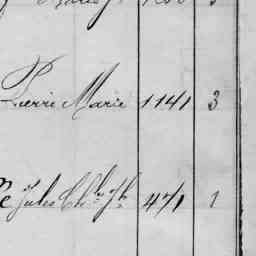 Pierre Marie 1141 3
Jules Ch.les Jh. 471 1